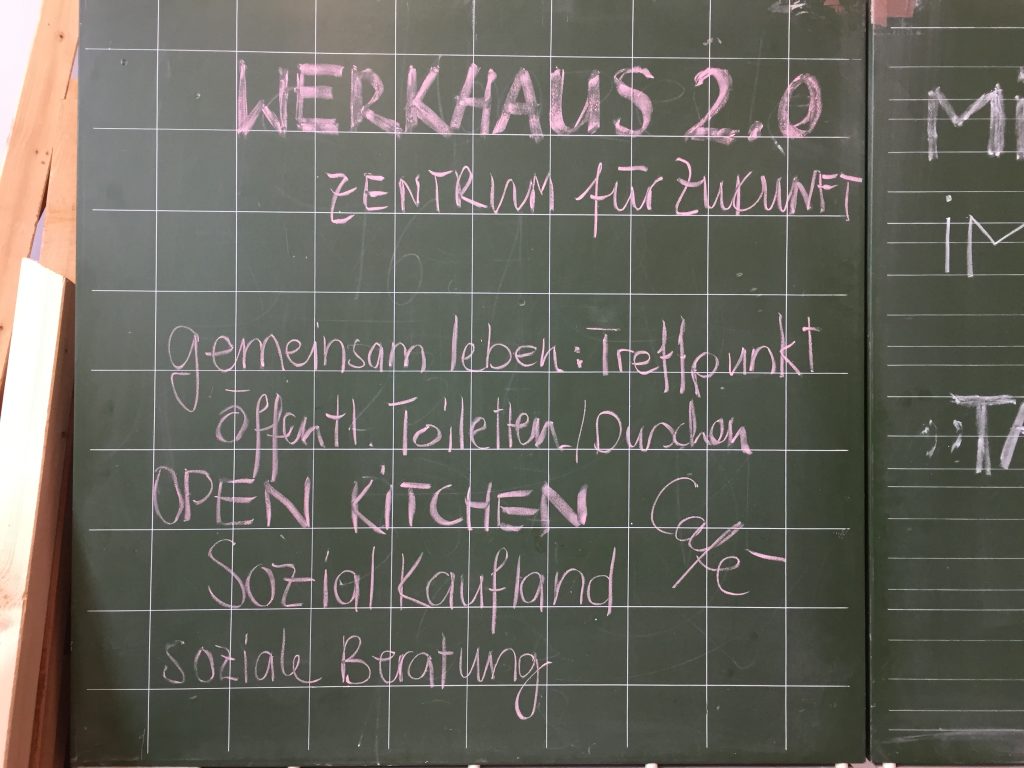 WERKHAUS 2.0
ZENTRUM für ZUKUNFT
gemeinsam leben: Treffpunkt
Öffentl. Toiletten/Duschen
OPEN KITCHEN Café
Sozialkaufland
soziale Beratung
Mi
iM
"TA